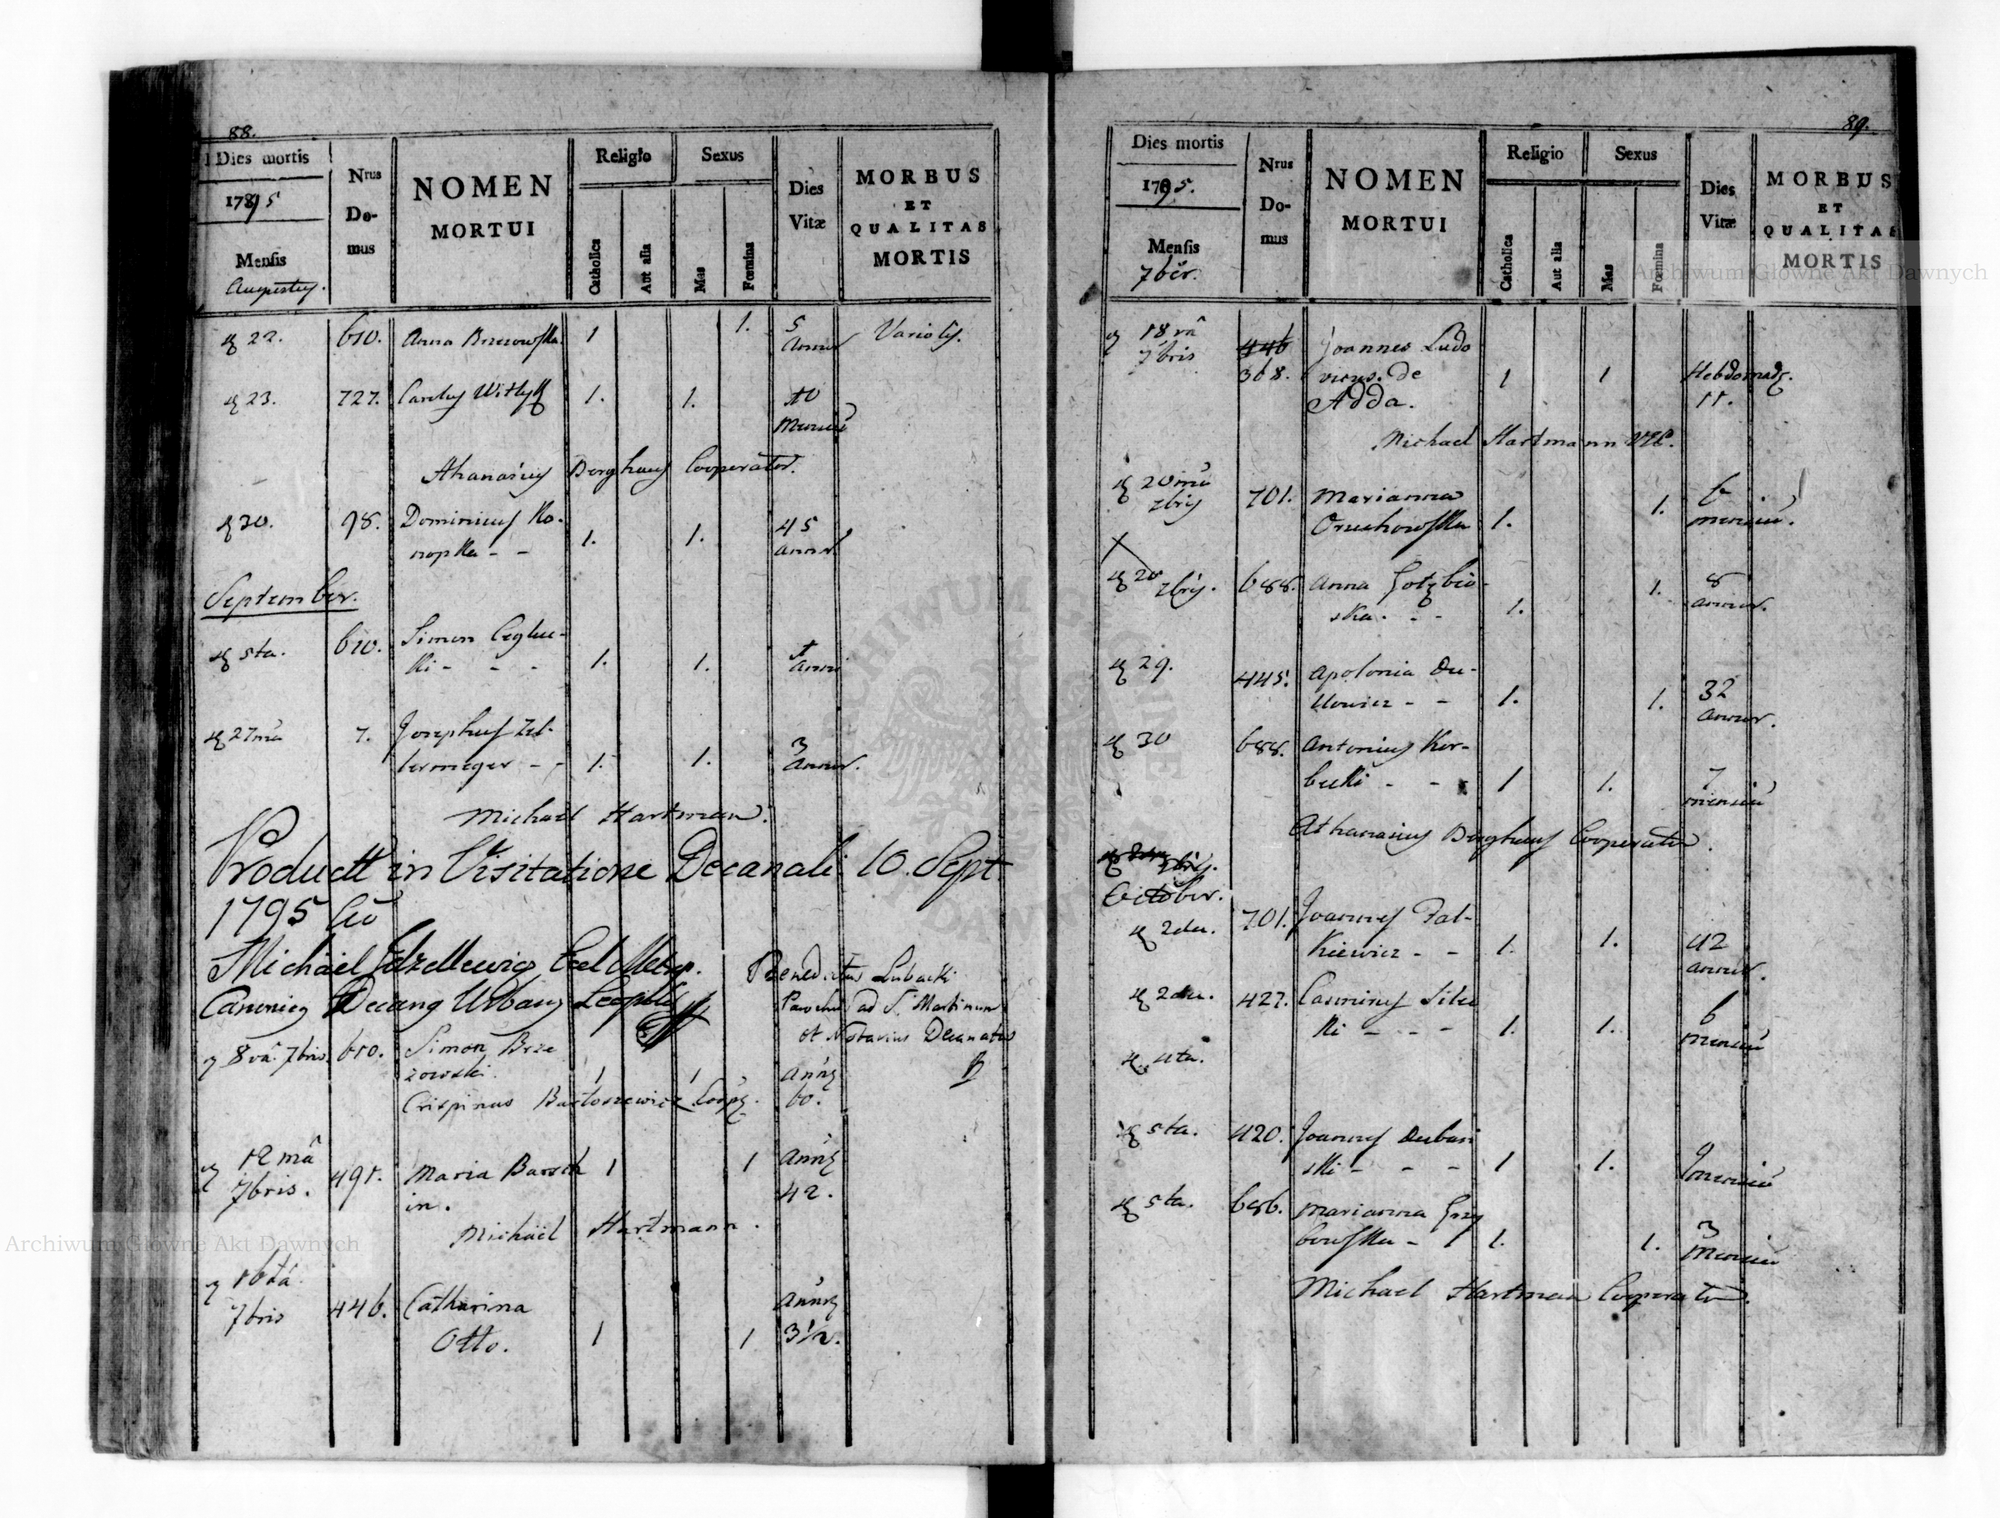 88.
Dies mortis
1795
Mensis
Augustus.
Nrus
Do-
mus
NOMEN
MORTUI
Religio
Catholica
Aut alia
Sexus
Mas
Fœmina
Dies
Vitæ
MORBUS
ET
QUALITAS
MORTIS
22. 610. Anna Brzozowska. 1 1. 5
Annor Variolis.
23. 727. Carolus 1. 1. 10
Mensiū
Athanasius Berghaus Cooperator.
30. 98. Dominicus Ko-
nopka - - 1. 1. 45
annor
September.
5ta. 610. Simon
ki - - - 1. 1. 1
Anni
27mā 7. Josephus
bermeyer - - 1. 1. 3
Annor.
Michael Hartman.
Product in Visitatione Decanali 10. Sept
1795
Michael
Canonicq Decang Urbang
Benedictus Lubacki
Parochus ad S. Martinum
et Notarius Decanatus
8vā 7bris 610. Simon Brze
zowski. 1 1 Annor
60.
Crispinus Bartoszewicz Coop.
12mâ
7bris. 491. Maria Barsch
in. 1 1 Annor
42.
Michäel Hartmann.
16tâ
7bris 446. Catharina
Otto. 1 1 Annor
3 1/2.
89.
Dies mortis
1795.
Mensis
7bēr.
Nrus
Do-
mus
NOMEN
MORTUI
Religio
Catholica
Aut alia
Sexus
Mas
Fœmina
Dies
Vitæ
MORBUS
ET
QUALITAS
MORTIS
18vâ
7bris 446
368. Joannes Ludo
vicus. de
Adda. 1 1 Hebdomadę.
11.
Michael Hartmann
20mā
7bris 701. Marianna
Orzechowska 1. 1. 6
mensiū.
20
7bris. 688. Anna
ska. - - 1. 1. 8
annor.
29. 445. Apolonia Du-
- - 1. 1. 32
annor.
30 688. Antonius Kor-
becki - - 1 1. 7
mensiū
Athanasius Berghaus Cooperator.
7bris.
October.
2da. 701. Joannes Fal-
kiewicz - - 1. 1. 42
annor.
2da. 427.
ki - - - 1. 1. 6
mensiū
4ta.
5ta. 420. Joannes Duban
ski - - - 1 1. 9
mensiū
5ta. 686. Marianna Grzy
bowska - 1. 1. 3
Mensiū
Michael Hartman Cooperator.
Archiwum Główne Akt Dawnych
Archiwum Główne Akt Dawnych